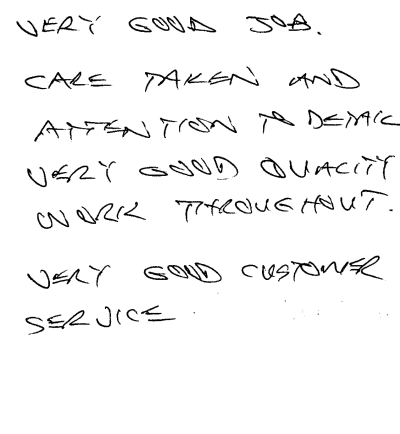 VERY GOOD JOB.
CARE TAKEN AND
ATTENTION TO DETAIL
VERY GOOD QUALITY
WORK THROUGHOUT.
VERY GOOD CUSTOMER
SERVICE